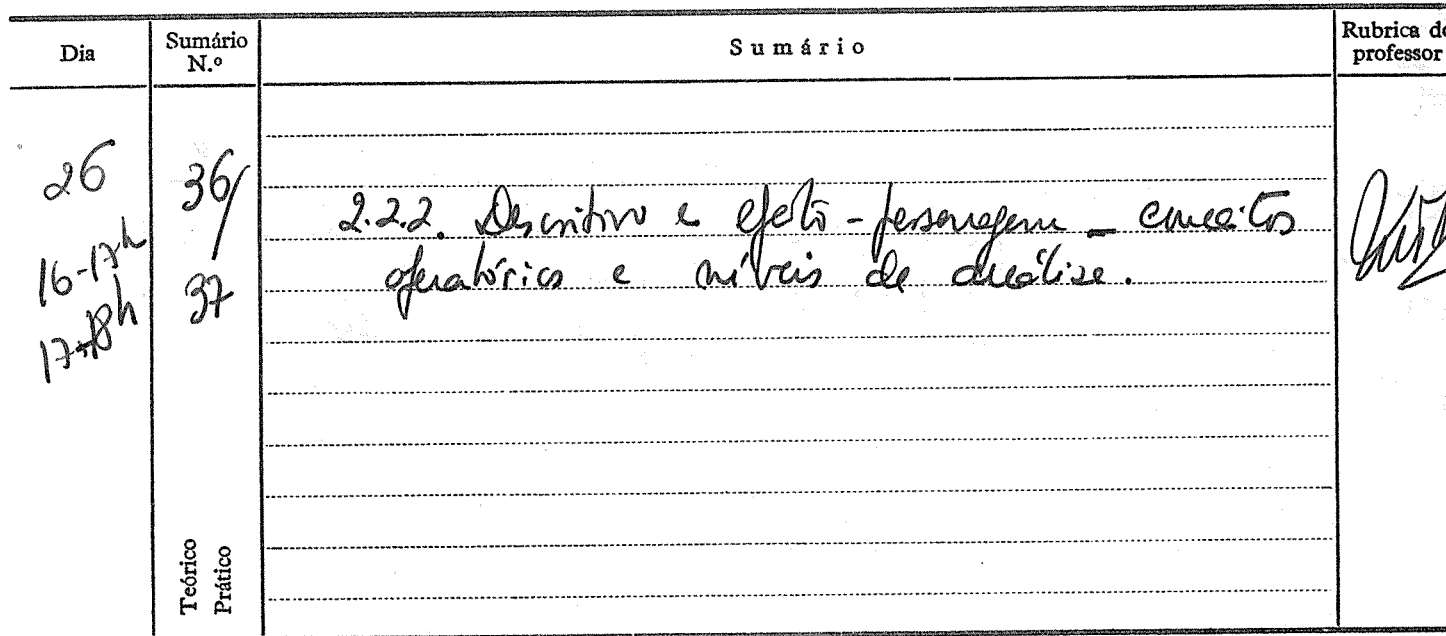 Dia
Sumário
N.º
Sumário
Rubrica do
professor
26
16-17h
17-18h
36/
37
2.2.2. Descritivo e efeito-personagem – conceitos
operatórios e níveis de análise.
Teórico
Prático